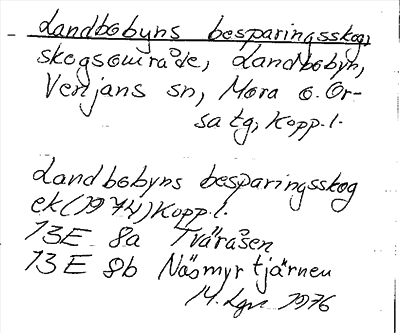 Landbobyns besparingsskog,
skogsområde, Landbobyn,
Venjans sn, Mora o. Or-
sa tg, Kopp.l.
Landbobyns besparingsskog
ek (1974) Kopp.l.
13E 8a Tväråsen
13E 8b Näsmyrtjärnen
1976